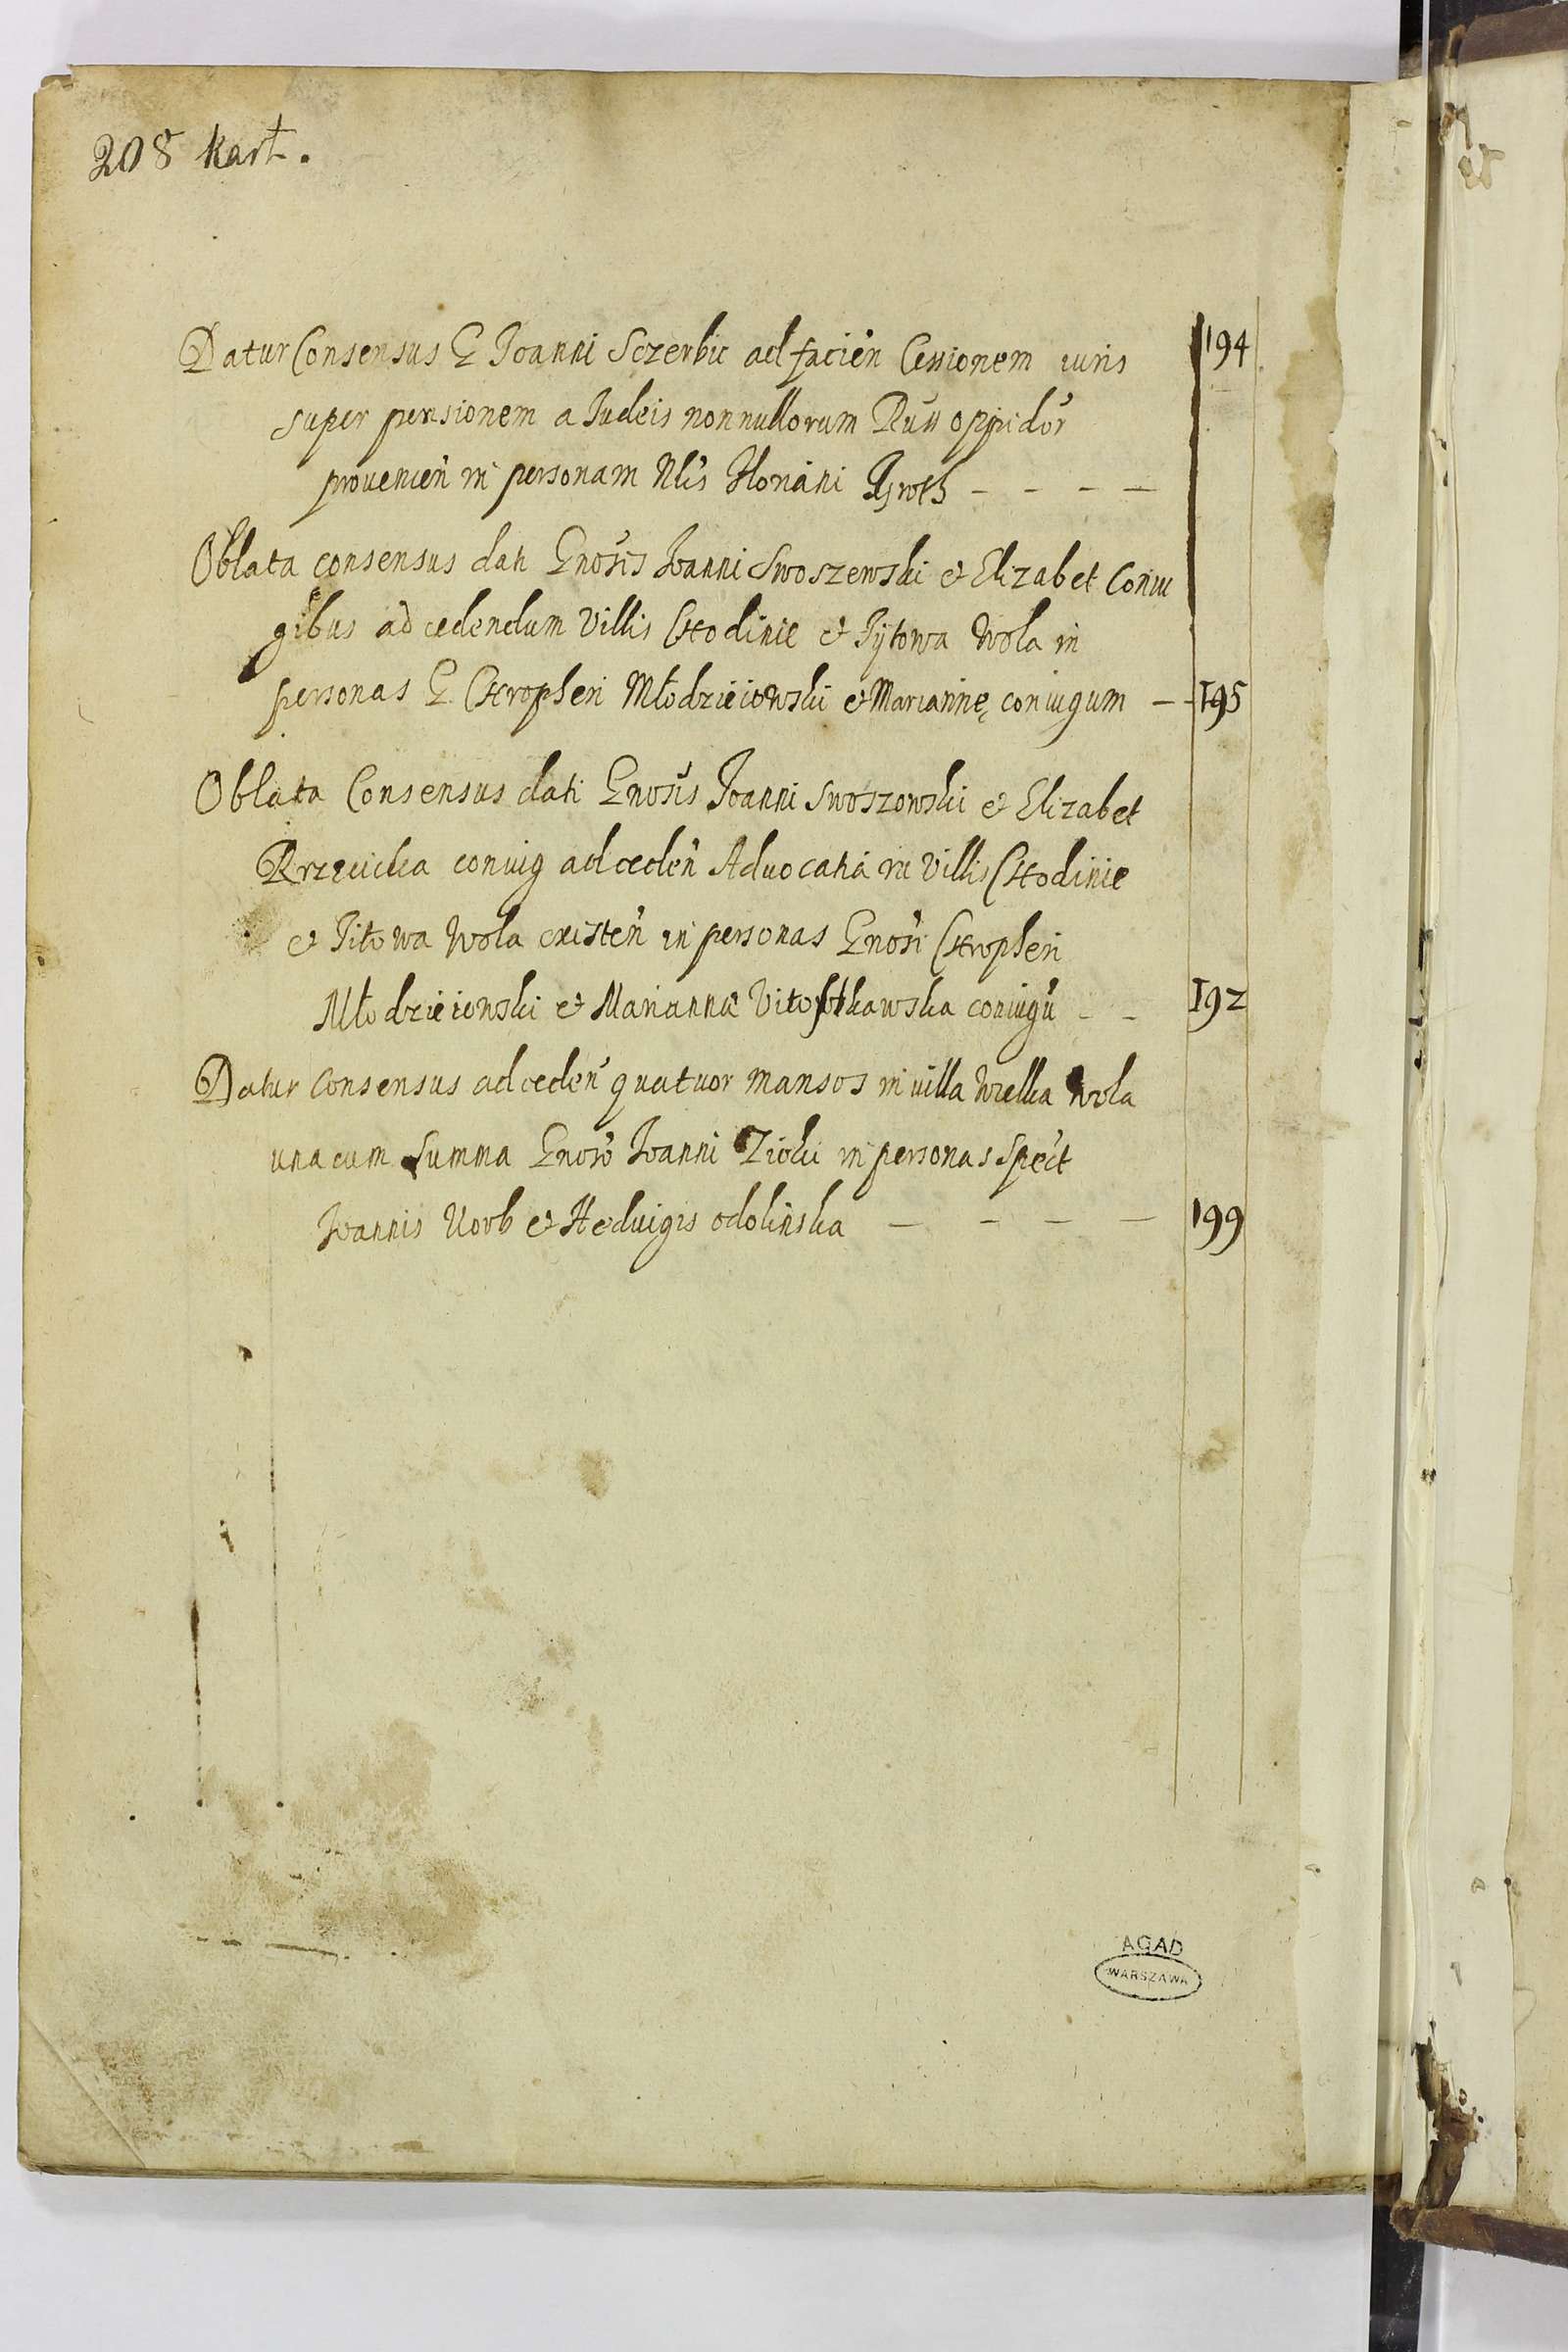 208 kart.
Datur Consensus G Joanni Sczerbic ad facien Cessionem iuris 194
super pensionem a Iudeis nonnullorum Russ oppidor
prouenien in personam Nlis Floriani - - - -
Oblata consensus dati Gnosis Joanni Swoszewski et Elizabet Coniu
gibus ad cedendum Villis Chodinie et Tytowa Wola in
personas G Chropheri Młodzieiowski et Mariannę coniugum - - 195
Oblata Consensus dati Gnosis Joanni Swoszowski et Elizabet
Rrzeczicka coniug ad ceden Aduocatia in Villis Chodinie
et Titowa Wola existen in personas Gnosi Chropheri
Młodzieiowski et Marianna coniugu - - 192
Datur Consensus ad ceden quatuor mansos in villa Wielka Wola
una cum Summa Gnoso Joanni Ziolki in personas Spect
Joannis Korb et Heduigis odolinska - - - - 199
AGAD
WARSZAWA